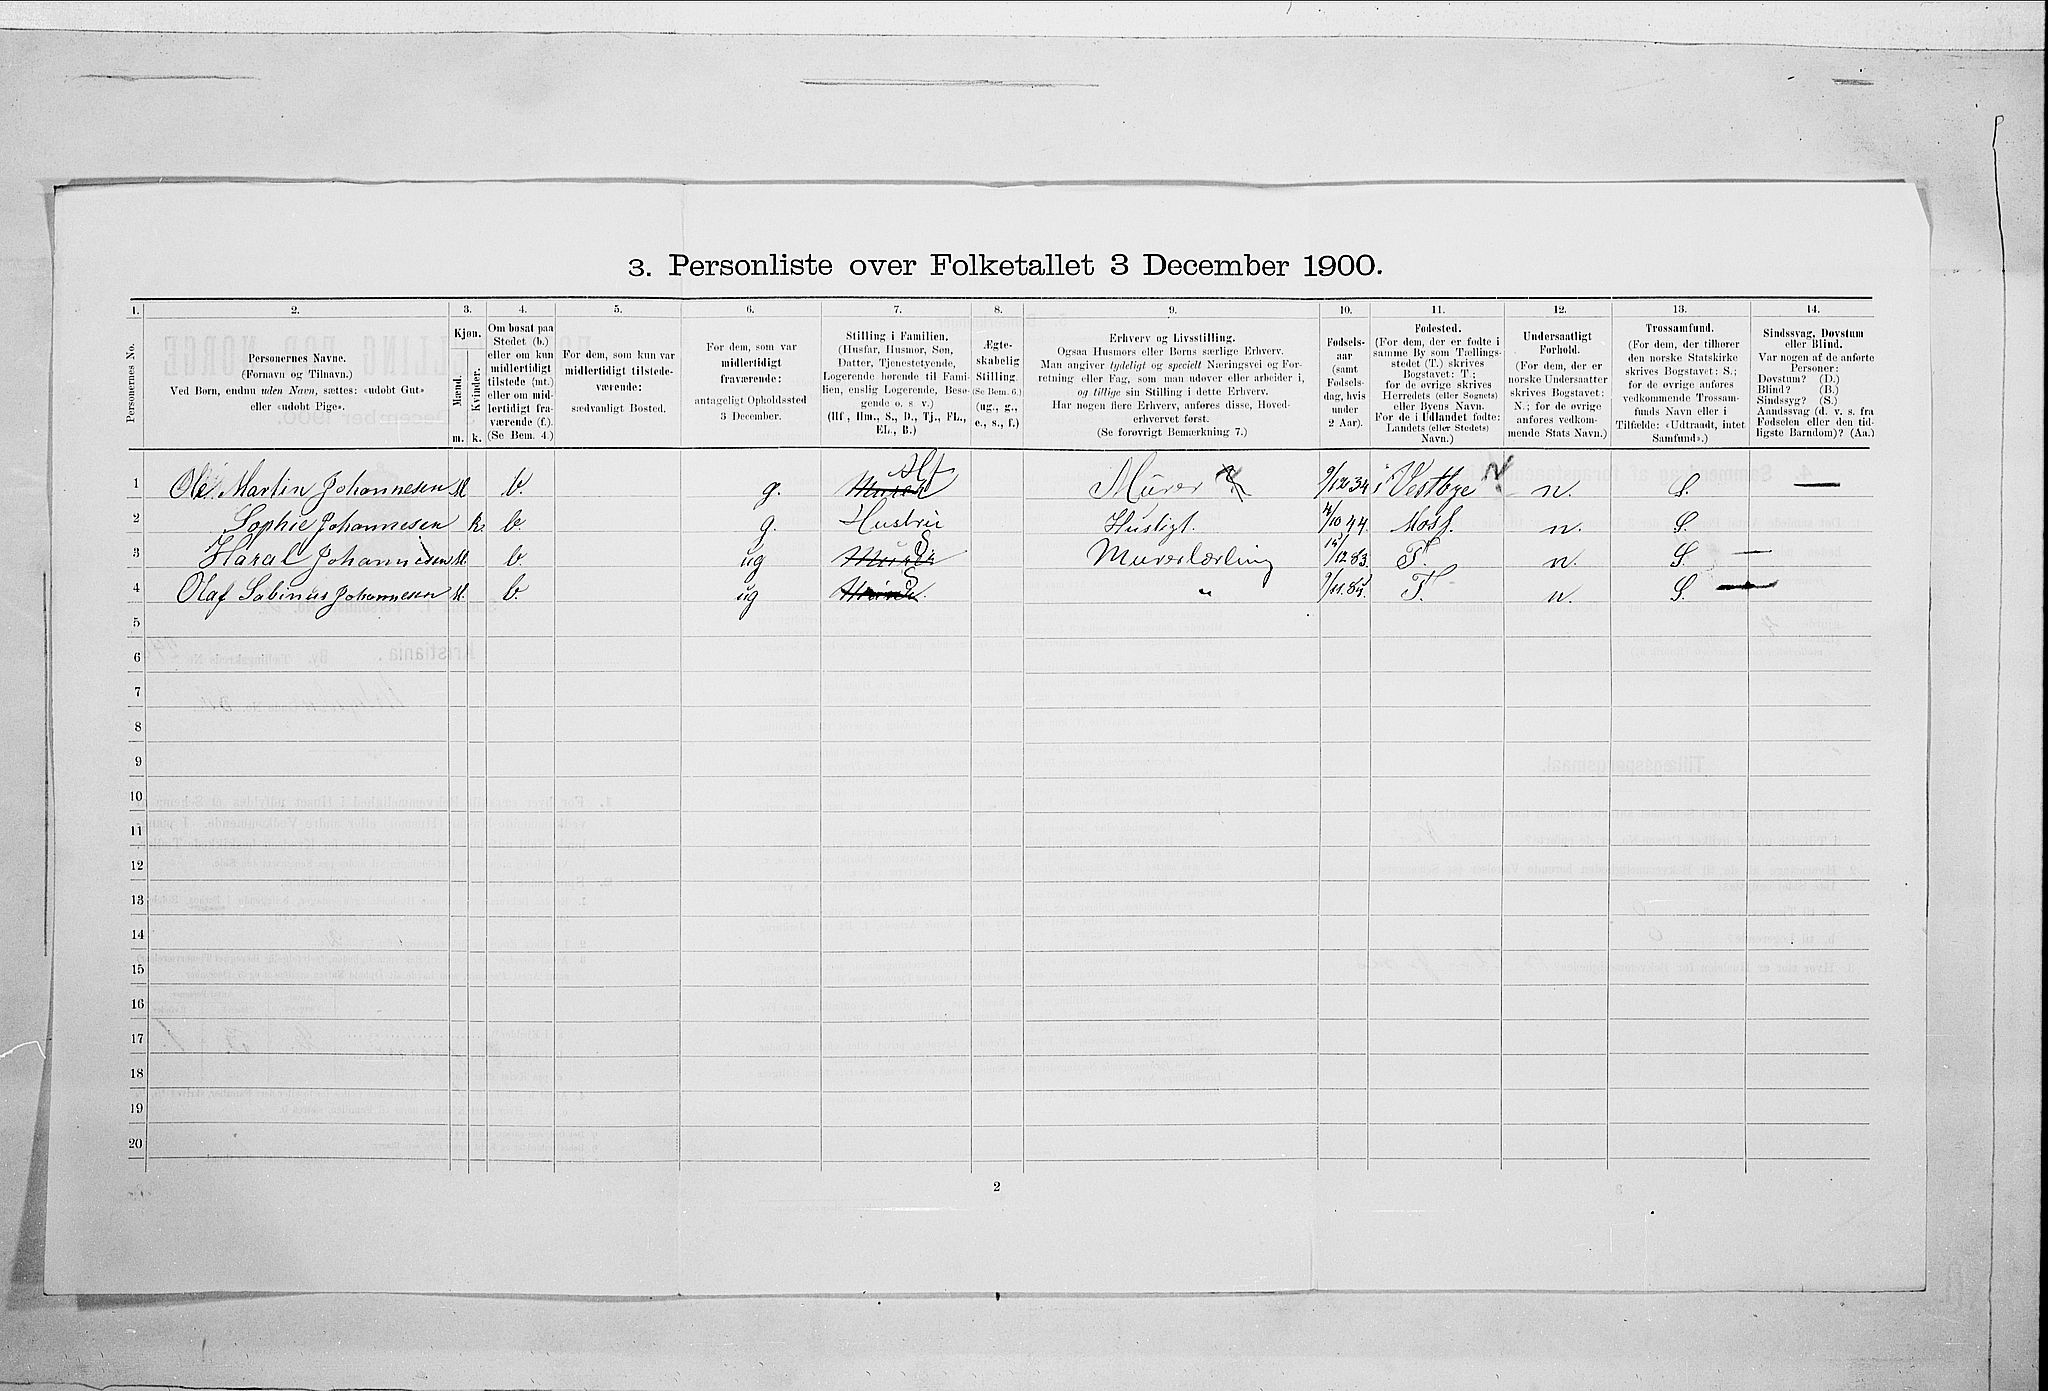 3. Personliste over Folketallet 3 December 1900.
1. 2. 3. 4. 5. 6. 7. 8. 9. 10. 11. 12. 13. 14.
Personernes No.
Personernes Navne.
(Fornavn og Tilnavn.)
Ved Børn, endnu uden Navn, sættes: «udøbt Gut»
eller «udøbt Pige».
Kjøn.
Mænd. Kvinder.
m. k.
Om bosat paa
Stedet (b.)
eller om kun
midlertidigt
tilstede (mt.)
eller om mid-
lertidigt fra-
værende (f.).
(Se Bem. 4.)
For dem, som kun var
midlertidigt tilstede-
værende:
sædvanligt Bosted.
For dem, som var
midlertidigt
fraværende:
antageligt Opholdssted
3 December.
Stilling i Familien.
(Husfar, Husmor, Søn,
Datter, Tjenestetyende,
Logerende hørende til Fami-
lien, enslig Logerende, Besø-
gende o. s. v.)
(Hf., Hm., S., D., Tj., FL.,
EL., B.)
Ægte-
skabelig
Stilling.
(Se Bem. 6.)
(ug., g.,
e., s., f.)
Erhverv og Livsstilling.
Ogsaa Husmors eller Børns særlige Erhverv.
Man angiver tydeligt og specielt Næringsvei og For-
retning eller Fag, som man udøver eller arbeider i,
og tillige sin Stilling i dette Erhverv.
Har nogen flere Erhverv, anføres disse, Hoved-
erhvervet først.
(Se forøvrigt Bemærkning 7.)
Fødsels-
aar
(samt
Fødsels-
dag, hvis
under
2 Aar).
Fødested.
(For dem, der er fødte i
samme By som Tællings-
stedet (T.) skrives
Bogstavet: T.;
for de øvrige skrives
Herredets (eller Sognets)
eller Byens Navn.
For de i Udlandet fødte:
Landets (eller Stedets)
Navn.)
Undersaatligt
Forhold.
(For dem, der er
norske Undersaatter
skrives Bogstavet:
N.; for de øvrige
anføres vedkom-
mende Stats Navn.)
Trossamfund.
(For dem, der tilhører
den norske Statskirke
skrives Bogstavet: S.;
for de øvrige anføres
vedkommende Trossam-
funds Navn eller i
Tilfælde: «Udtraadt, intet
Samfund».)
Sindssvag, Døvstum
eller Blind.
Var nogen af de anførte
Personer:
Døvstum? (D.)
Blind? (B.)
Sindssyg? (S.)
Aandssvag (d. v. s. fra
Fødselen eller den tid-
ligste Barndom)? (Aa.)
1 Ole Martin Johannesen M. b. g. Hf Murer 9/12 34 i Vestbye N n. S. —
2 Sophie Johannesen K. b. g. Hustru Husligt. 4/10 44. Moss. n. S.
3 Haral Johannesen M. b. ug S Murerlærling 15/12 83. T. n. S. —
4 Olaf Sabinus Johannesen M. b. ug S. " 9/11. 85. T. n. S. —
5
6
7
8
9
10
11
12
13
14
15
16
17
18
19
20
2